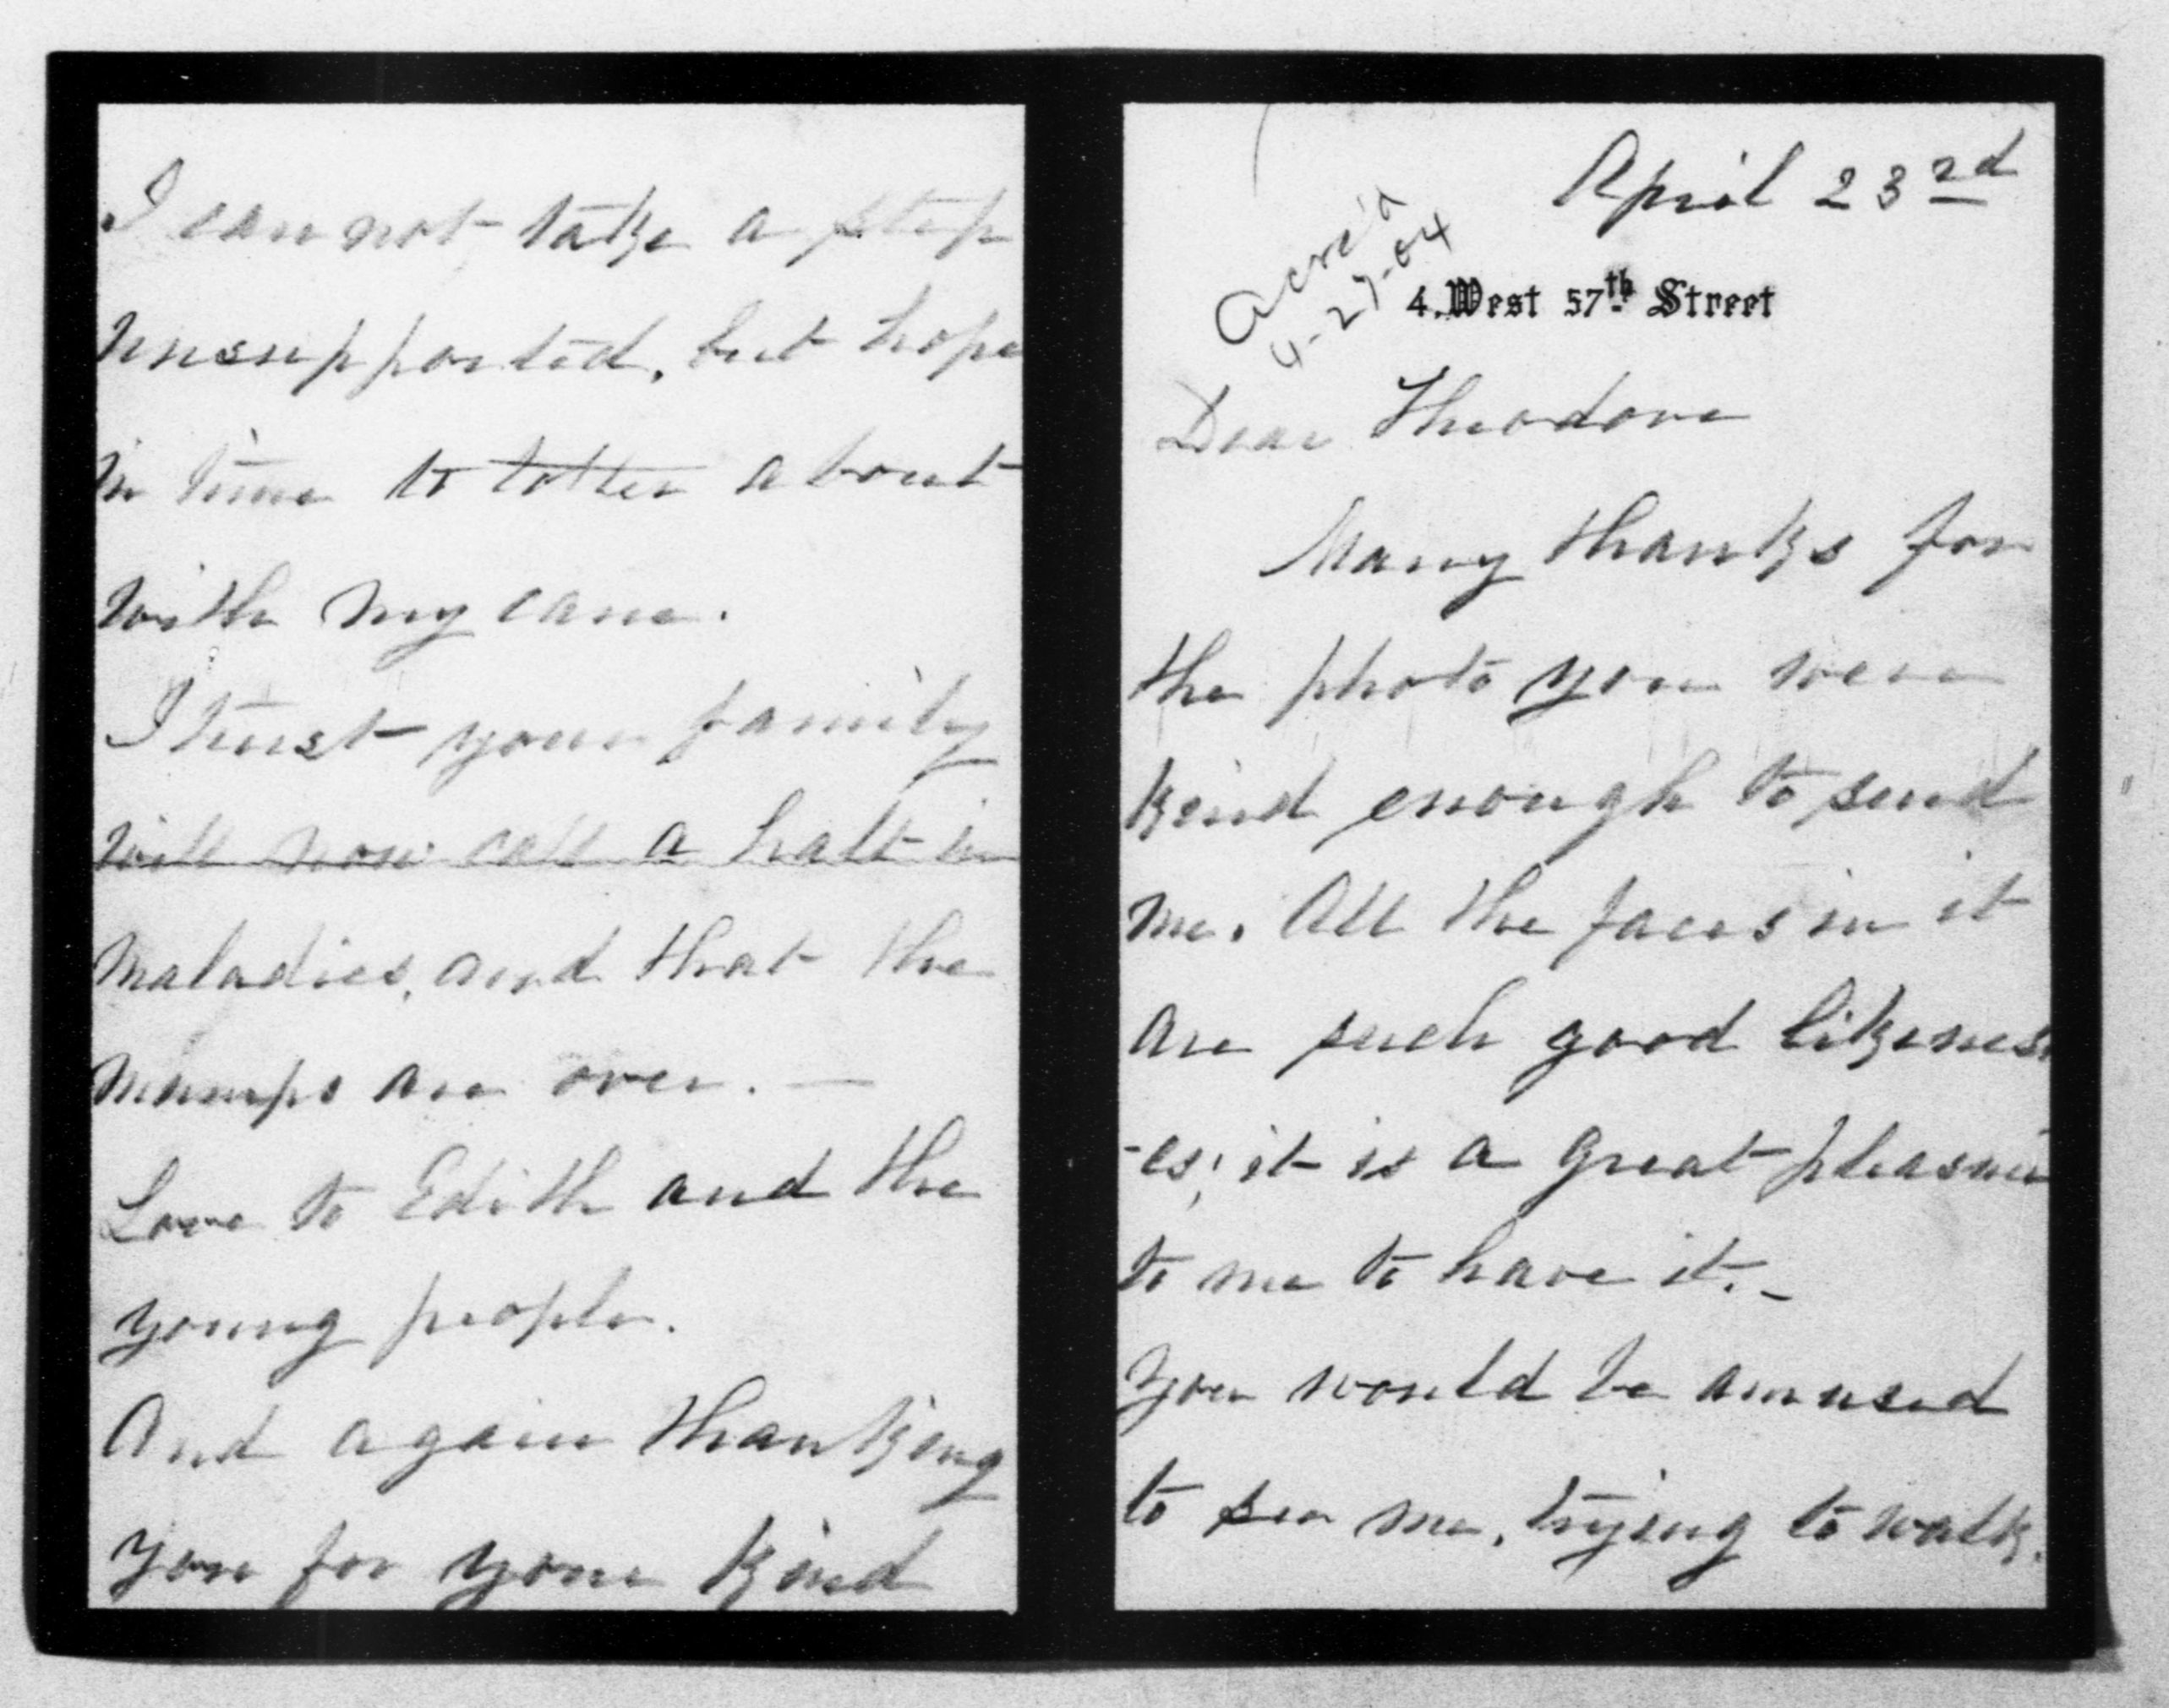 April 23rd
Ack'd
4-27-04
4. West 57th Street
Dear Theodore
Many thanks for
the photo you were
kind enough to send
me. All the faces in it
are such good likeness
-es; it is a great pleasure
to me to have it. -
You would be amused
to see me, trying to walk.
I can not take a step
unsupported, but hope
in time to totter about
with my cane.
I trust your family
will now call a halt in
maladies, and that the
mumps are over. —
Love to Edith and the
young people.
And again thanking
you for your kind